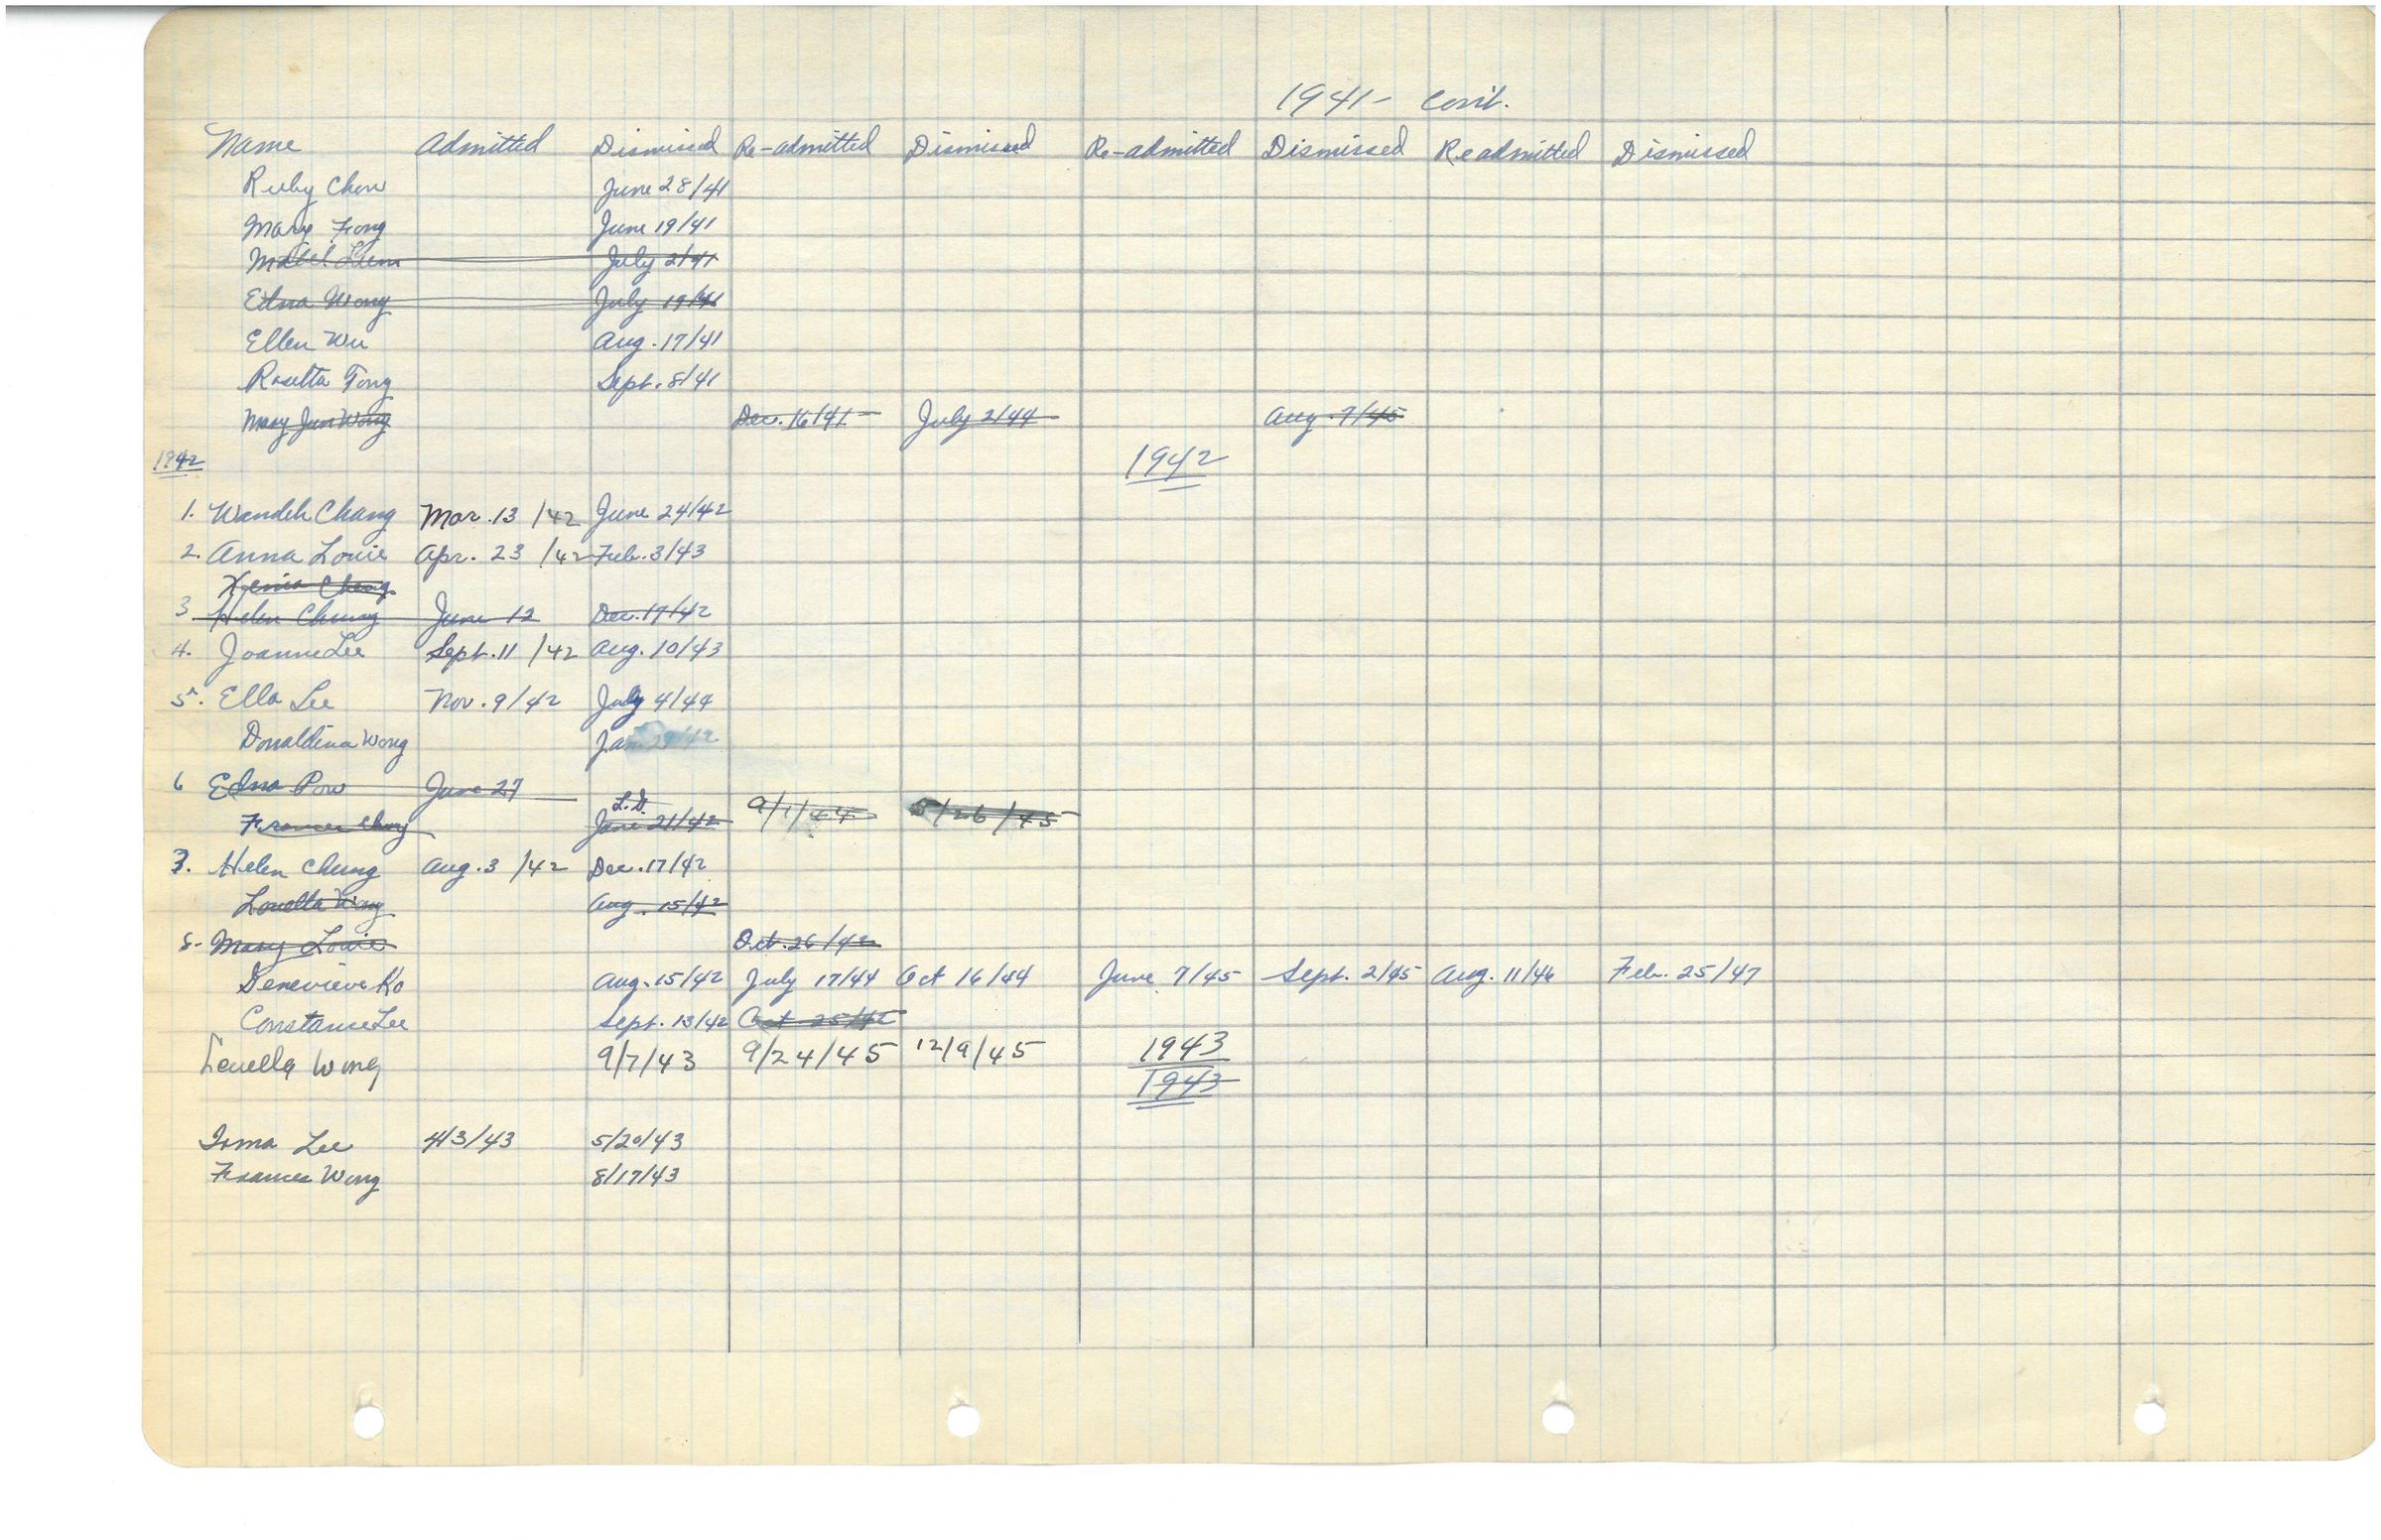 1941- Cont.
Name Admitted Dismissed Re-admitted Dismissed Re-admitted Dismissed Readmitted Dismissed
Ruby Chow June 28/41
Mary Fong June 19/41
Mabel July 2/41
Edna Wong July 19/41
Ellen Wu Aug. 17/41
Rosetta Tong Sept. 8/41
Mary Jun Wong Dec. 16/41 July 2/44 Aug. 7/45
1942 1942
1. Wandeh Chang Mar. 13 /42 June 24/42
2. Anna Louie Apr. 23 /42 Feb. 3/43
Cheng
3 Helen Chung June 12 Dec. 17/42
4. Joanne Lee Sept. 11 /42 Aug. 10/43
5. Ella Lee Nov. 9/42 July 4/44
Donaldina Wong Jan 29/42
6 Edna Pow June 27
L.D.
Frances Chung June 21/42 9/1/44 5/26/45
7. Helen Chung Aug. 3 /42 Dec. 17/42
Louella Wong Aug. 15/42
8- Mary Louie Oct. 26/42
Genevieve Ko Aug. 15/42 July 17/44 Oct 16/44 June 7/45 Sept. 2/45 Aug. 11/46 Feb. 25/47
Constance Lee Sept. 13/42 Oct 25/42
Louella Wong 9/7/43 9/24/45 12/9/45 1943
1943
Irma Lee 4/3/43 5/20/43
Frances Wong 8/17/43